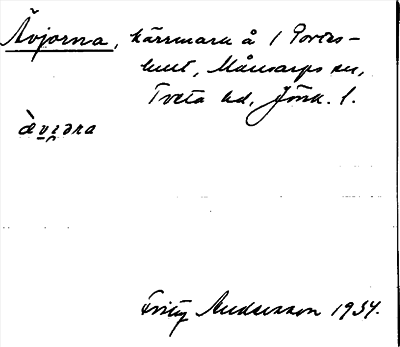 Ävjorna, kärrmark å 1 Porters-
hult, Månsarps sn,
Tveta hd, Jönk. l.
ävjɷra
Fritz Andersson 1934.